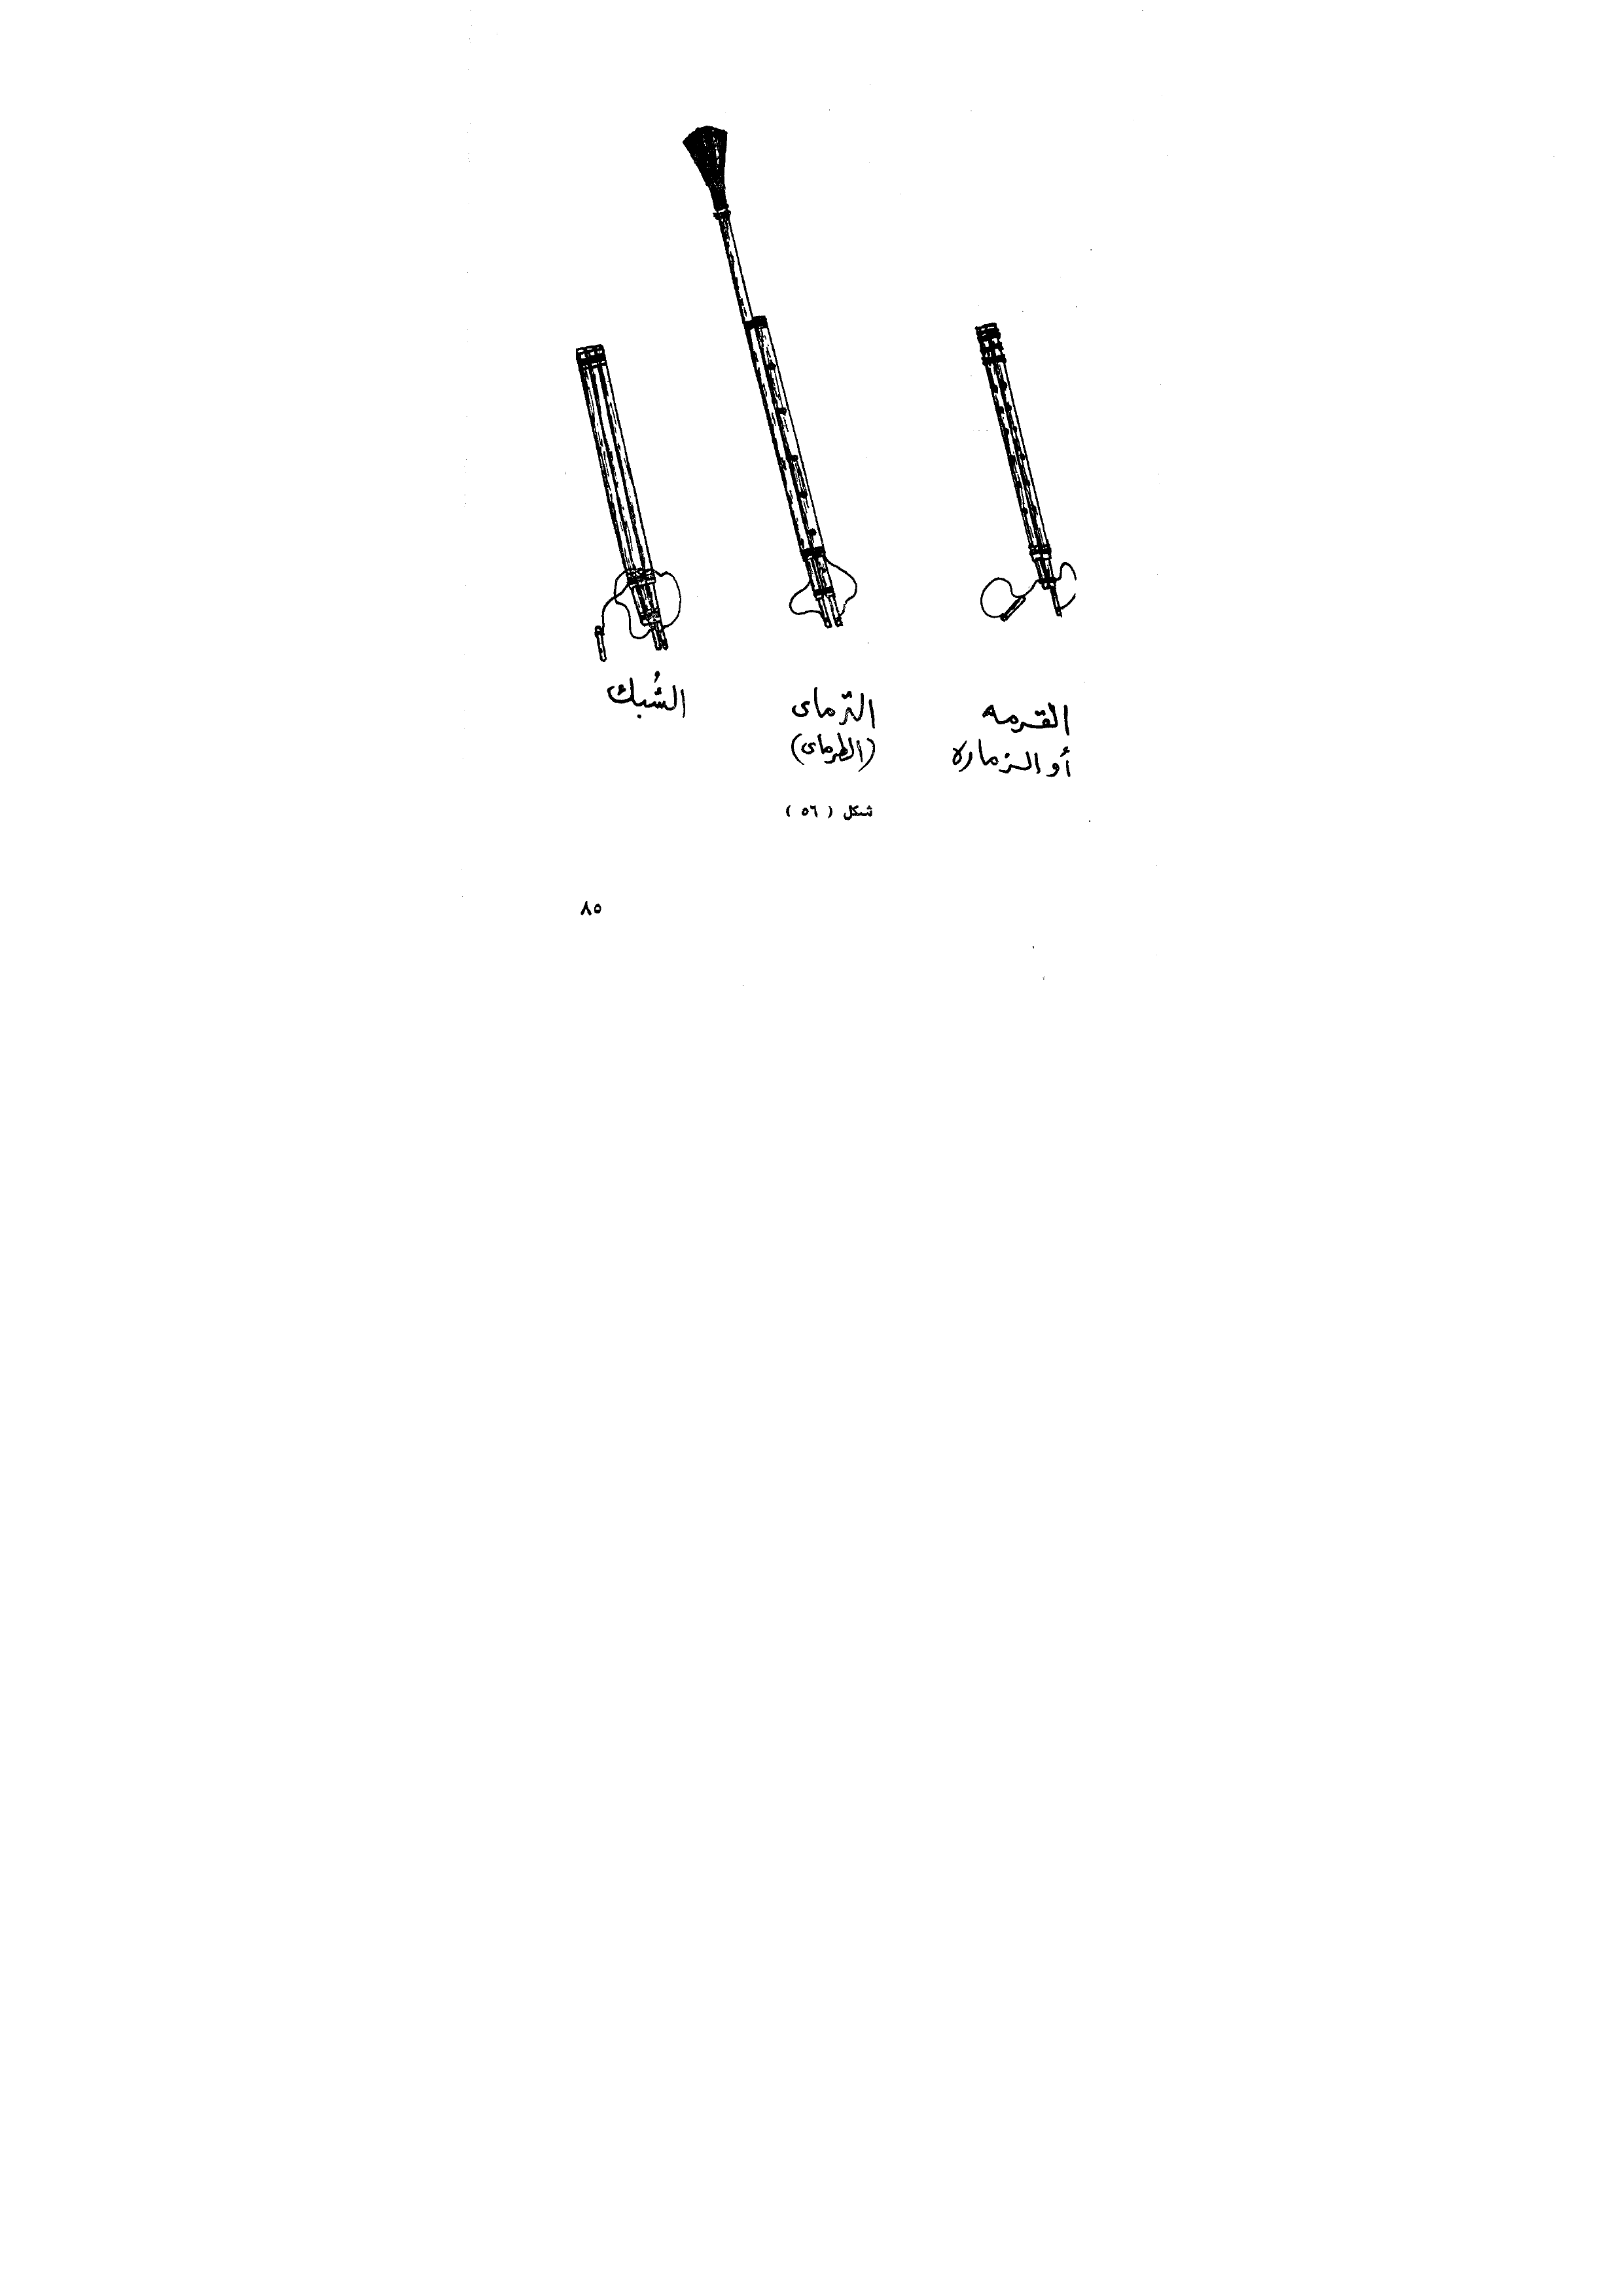 القرمه
أو الزماره
الترماى
(الطرماى)
الشُبك
شكل ( ٥٦ )
٨٥